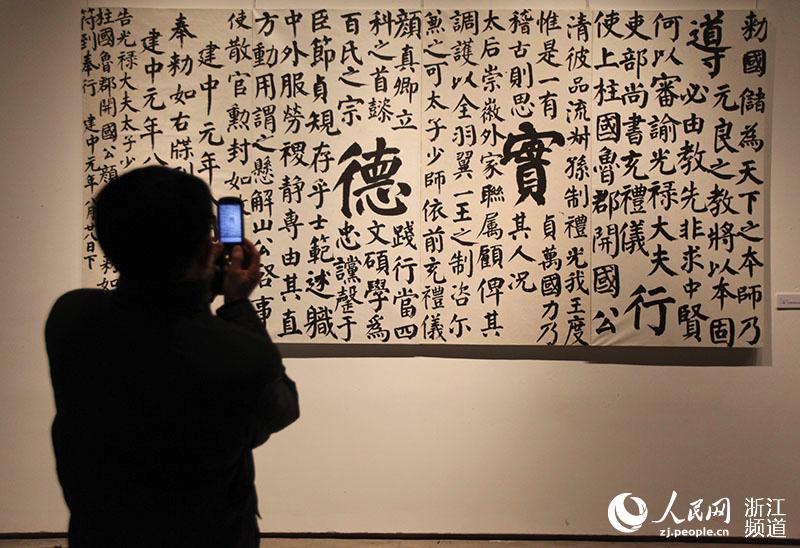 勅國儲為天下之本師乃
導 元良之教將以本固
必由教先非求中賢
何以審諭光祿大夫行
吏部尚書充禮儀
使上柱國魯郡開國公
清彼品流叔孫制禮光我王度
惟是一有實貞萬國力乃
稽古則思其人況
太后崇徽外家聯屬顧俾其
調護以全羽翼一王之制咨尔
兼之可太子少師依前充禮儀
顏真卿立德踐行當四
科之首懿文碩學為
百氏之宗忠讜罄于
臣節貞規存乎士範述職
中外服勞稷靜專由其直
方動用謂之懸解山公啓事
使散官勳封如
建中元年
奉勅如右牒到
建中元年八
告光祿大夫太子少
柱國魯郡開國公顏 勅如
符到奉行 建中元年八月廿八日下
人民网 浙江频道
zj.people.cn